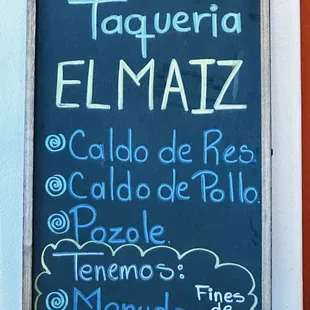 Taqueria
ELMAIZ
Caldo de Res.
Caldo de Pollo.
Pozole.
Tenemos:
Menudo
Fines
de